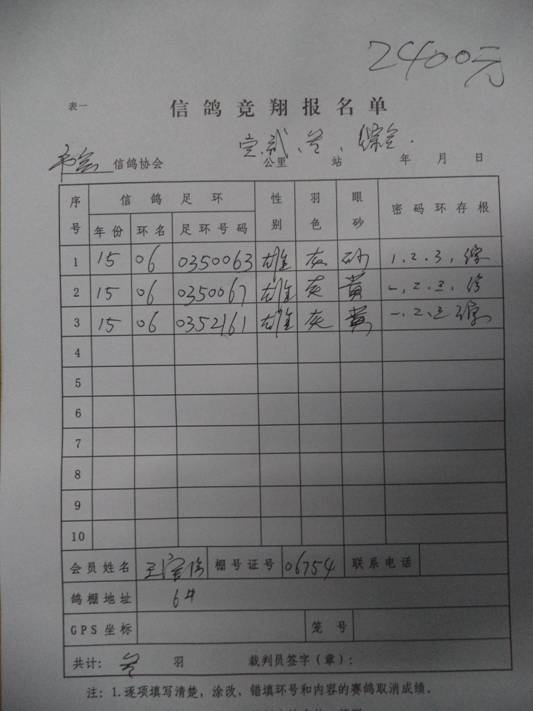 2400元
表一
信鸽竞翔报名单
信鸽协会 公里 站 年 月 日
序号 信鸽足环 性别 羽色 眼砂 密码环存根
年份 环名 足环号码
1 15 06 0350063 雄 灰 砂 1.2.3,综
2 15 06 0350067 雄 灰 黄 一,二,三,综
3 15 06 0352161 雄 灰 黄 一,二,三综
4
5
6
7
8
9
10
会员姓名 王 棚号证号 06754 联系电话
鸽棚地址 6#
GPS坐标 笼号
共计: 羽 裁判员签字(章):
注:1.逐项填写清楚,涂改、错填环号和内容的赛鸽取消成绩。